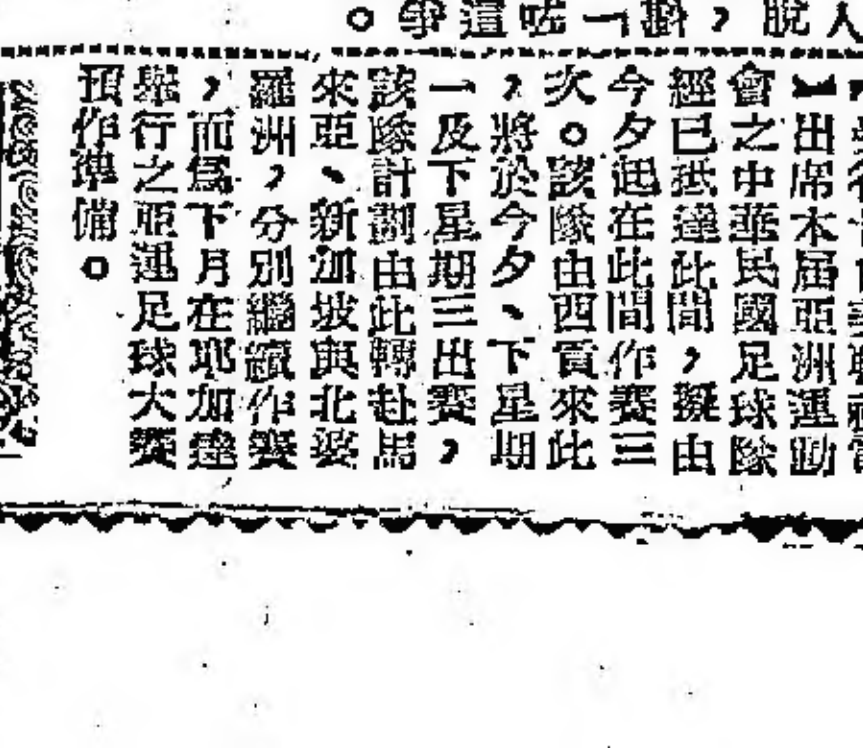 出席本届亞洲運動
會之中華民國足球隊
經已抵達此間，擬由
今夕起在此間作賽三
次。該隊由西貢來此
，將於今夕、下星期
一及下星期三出賽，
該隊計劃由此轉赴馬
來亞、新加坡與北婆
羅洲，分別繼續作賽
，而爲下月在耶加達
舉行之亞運足球大賽
預作準備。